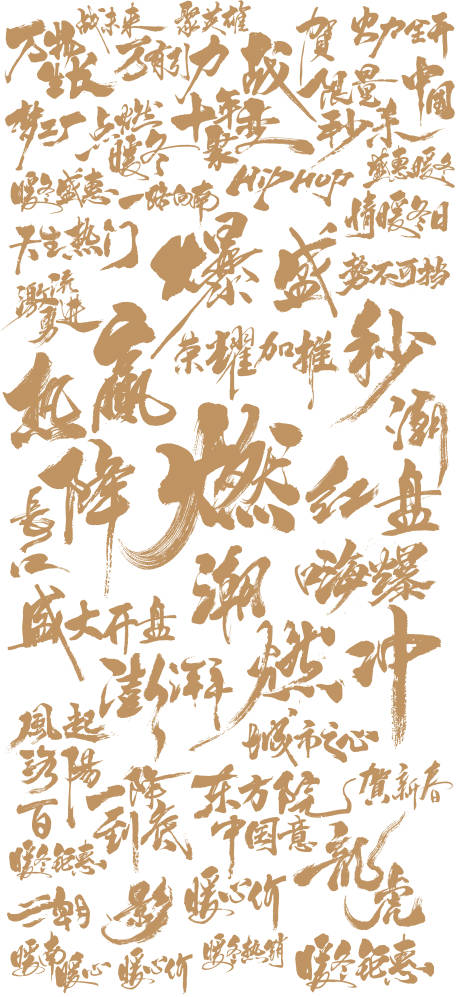 万物生长
战未来
聚英雄
贺
出力全开
万有引力
战
限量
中国
梦工厂
点燃
暖冬
十年
聚变
秒杀
盛惠暖冬
暖冬盛惠
一路向南
HipHop
情暖冬日
天生热门
爆
盛
势不可挡
激流勇进
赢
荣耀加推
秒
热
潮
降
燃
红盘
長江
潮
嗨爆
盛大开盘
澎湃
燃
冲
風起
洛陽
城市之心
百
一降到底
东方院
中国意
贺新春
暖冬钜惠
龍虎
影
暖心价
暖南
暖心
暖心价
暖冬热销
暖冬钜惠